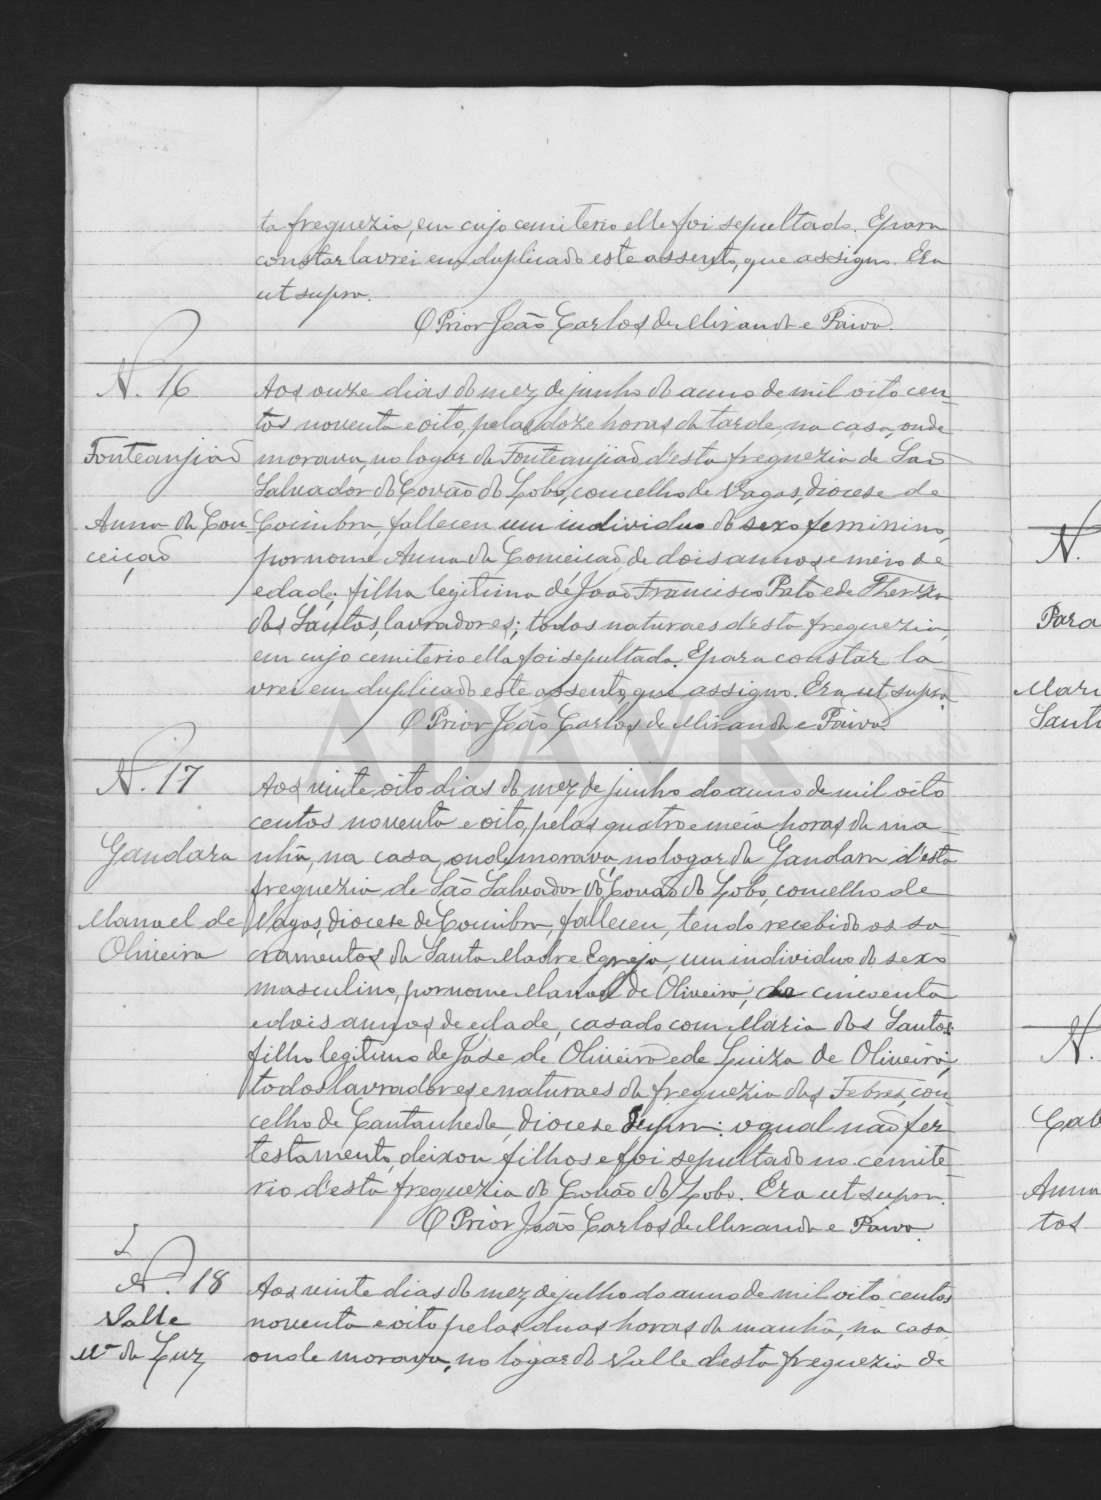 ta freguezia, em cujo cemiterio elle foi sepultado. E para
constar lavrei em duplicado este assento, que assigno. Era
ut supra.
O Prior João Carlos de Miranda e Paiva.
N. 16
Fonteanjião
Anna da Con
ceição
Aos onze dias do mez de junho do anno de mil oito cen-
tos noventa e oito, pelas doze horas da tarde, na casa, onde
morava, no logar da Fonteanjião d'esta freguezia de São
Salvador do Covão do Lobo, concelho de Vagos, diocese de
Coimbra, falleceu um individuo do sexo feminino,
por nome Anna da Conceição, de dois annos e meio de
edade, filha legitima de João Francisco Rato e de Thereza
dos Santos, lavradores; todos naturaes d'esta freguezia,
em cujo cemiterio ella foi sepultada. E para constar la
vrei em duplicado este assento, que assigno. Era ut supra.
O Prior João Carlos de Miranda e Paiva.
N. 17
Gandara
Manuel de
Oliveira
Aos vinte oito dias do mez de junho do anno de mil oito
centos noventa e oito, pelas quatro e meia horas da ma-
nhã, na casa, onde morava, no logar da Gandara d'esta
freguezia de São Salvador do Covão do Lobo, concelho de
Vagos, diocese de Coimbra, falleceu, tendo recebido os sa-
cramentos da Santa Madre Egreja, um individuo do sexo
masculino, por nome Manuel de Oliveira, de cincoenta
e dois annos de edade, casado com Maria dos Santos,
filho legitimo de José de Oliveira e de Luiza de Oliveira,
todos lavradores e naturaes da freguezia das Febres, con-
celho de Cantanhede, diocese supra: o qual não fez
testamento, deixou filhos e foi sepultado no cemite-
rio d'esta freguezia do Covão do Lobo. Era ut supra.
O Prior João Carlos de Miranda e Paiva.
N. 18
Valle
M.ª da Luz
Aos vinte dias do mez de julho do anno de mil oito centos
noventa e oito, pelas duas horas da manhã, na casa
onde morava, no logar do Valle d'esta freguezia de
N.
Para
Mari
Santo
N.
Gab
Anna
tos
ADAVR